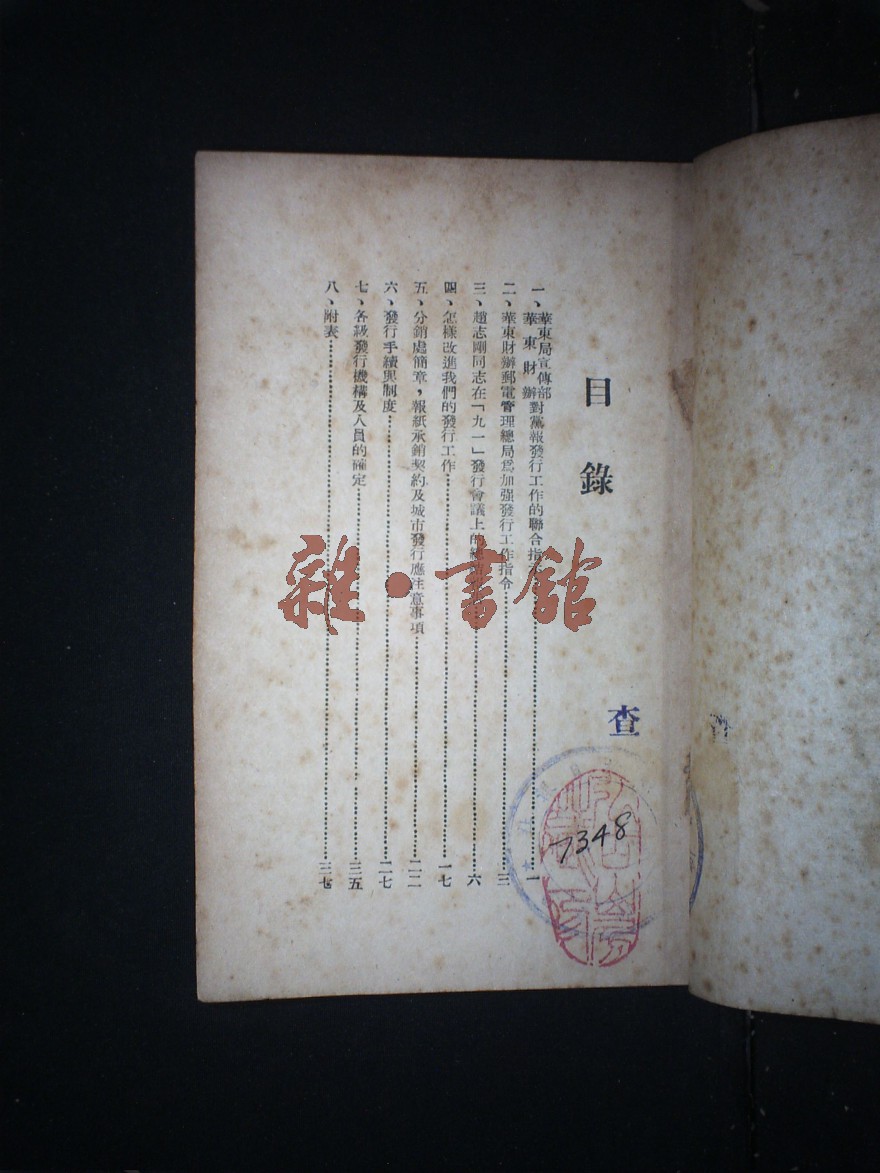 目錄
一、華東局宣傳部
華東財辦
對黨報發行工作的聯合指示……一
二、華東財辦郵電管理總局爲加强發行工作指令……三
三、趙志剛同志在「九一」發行會議上的總結……六
四、怎樣改進我們的發行工作……一七
五、分銷處簡章，報紙承銷契約及城市發行應注意事項……二二
六、發行手續與制度……二七
七、各級發行機構及人員的確定……三五
八、附表……三七
查
7348
雜·書館